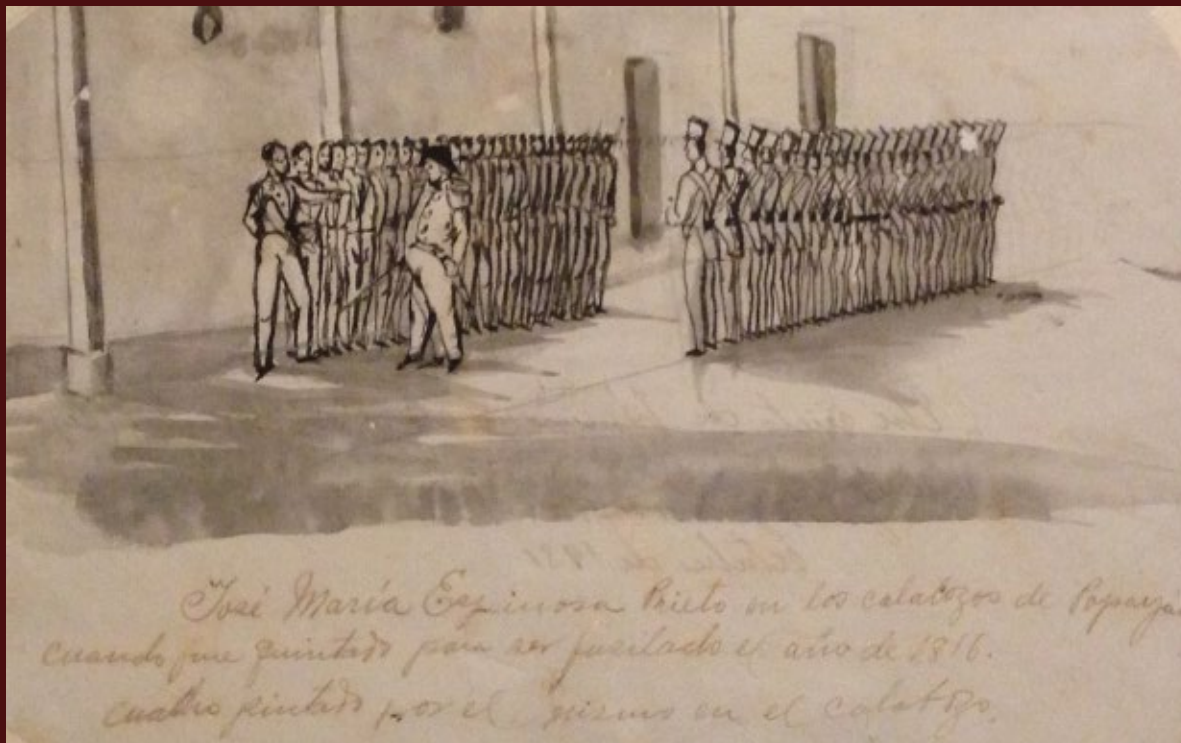 José María Espinosa Prieto en los calabozos de Popayá
cuando fue quintado para ser fusilado el año de 1816.
cuadro pintado por el mismo en el calabozo.